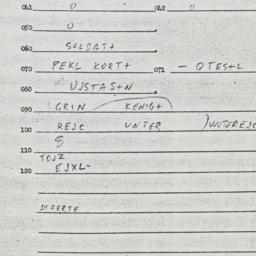 061 0 062 0
050 0
060 SOLDAT+
070 PEKL KORT+ 071 - QTES+L
080 USTAS+N
090 GRIN KENIG+
100 REJC UNTER )UNTEREJC
110 S
TOJZ
120 EJXL-
DISERTE